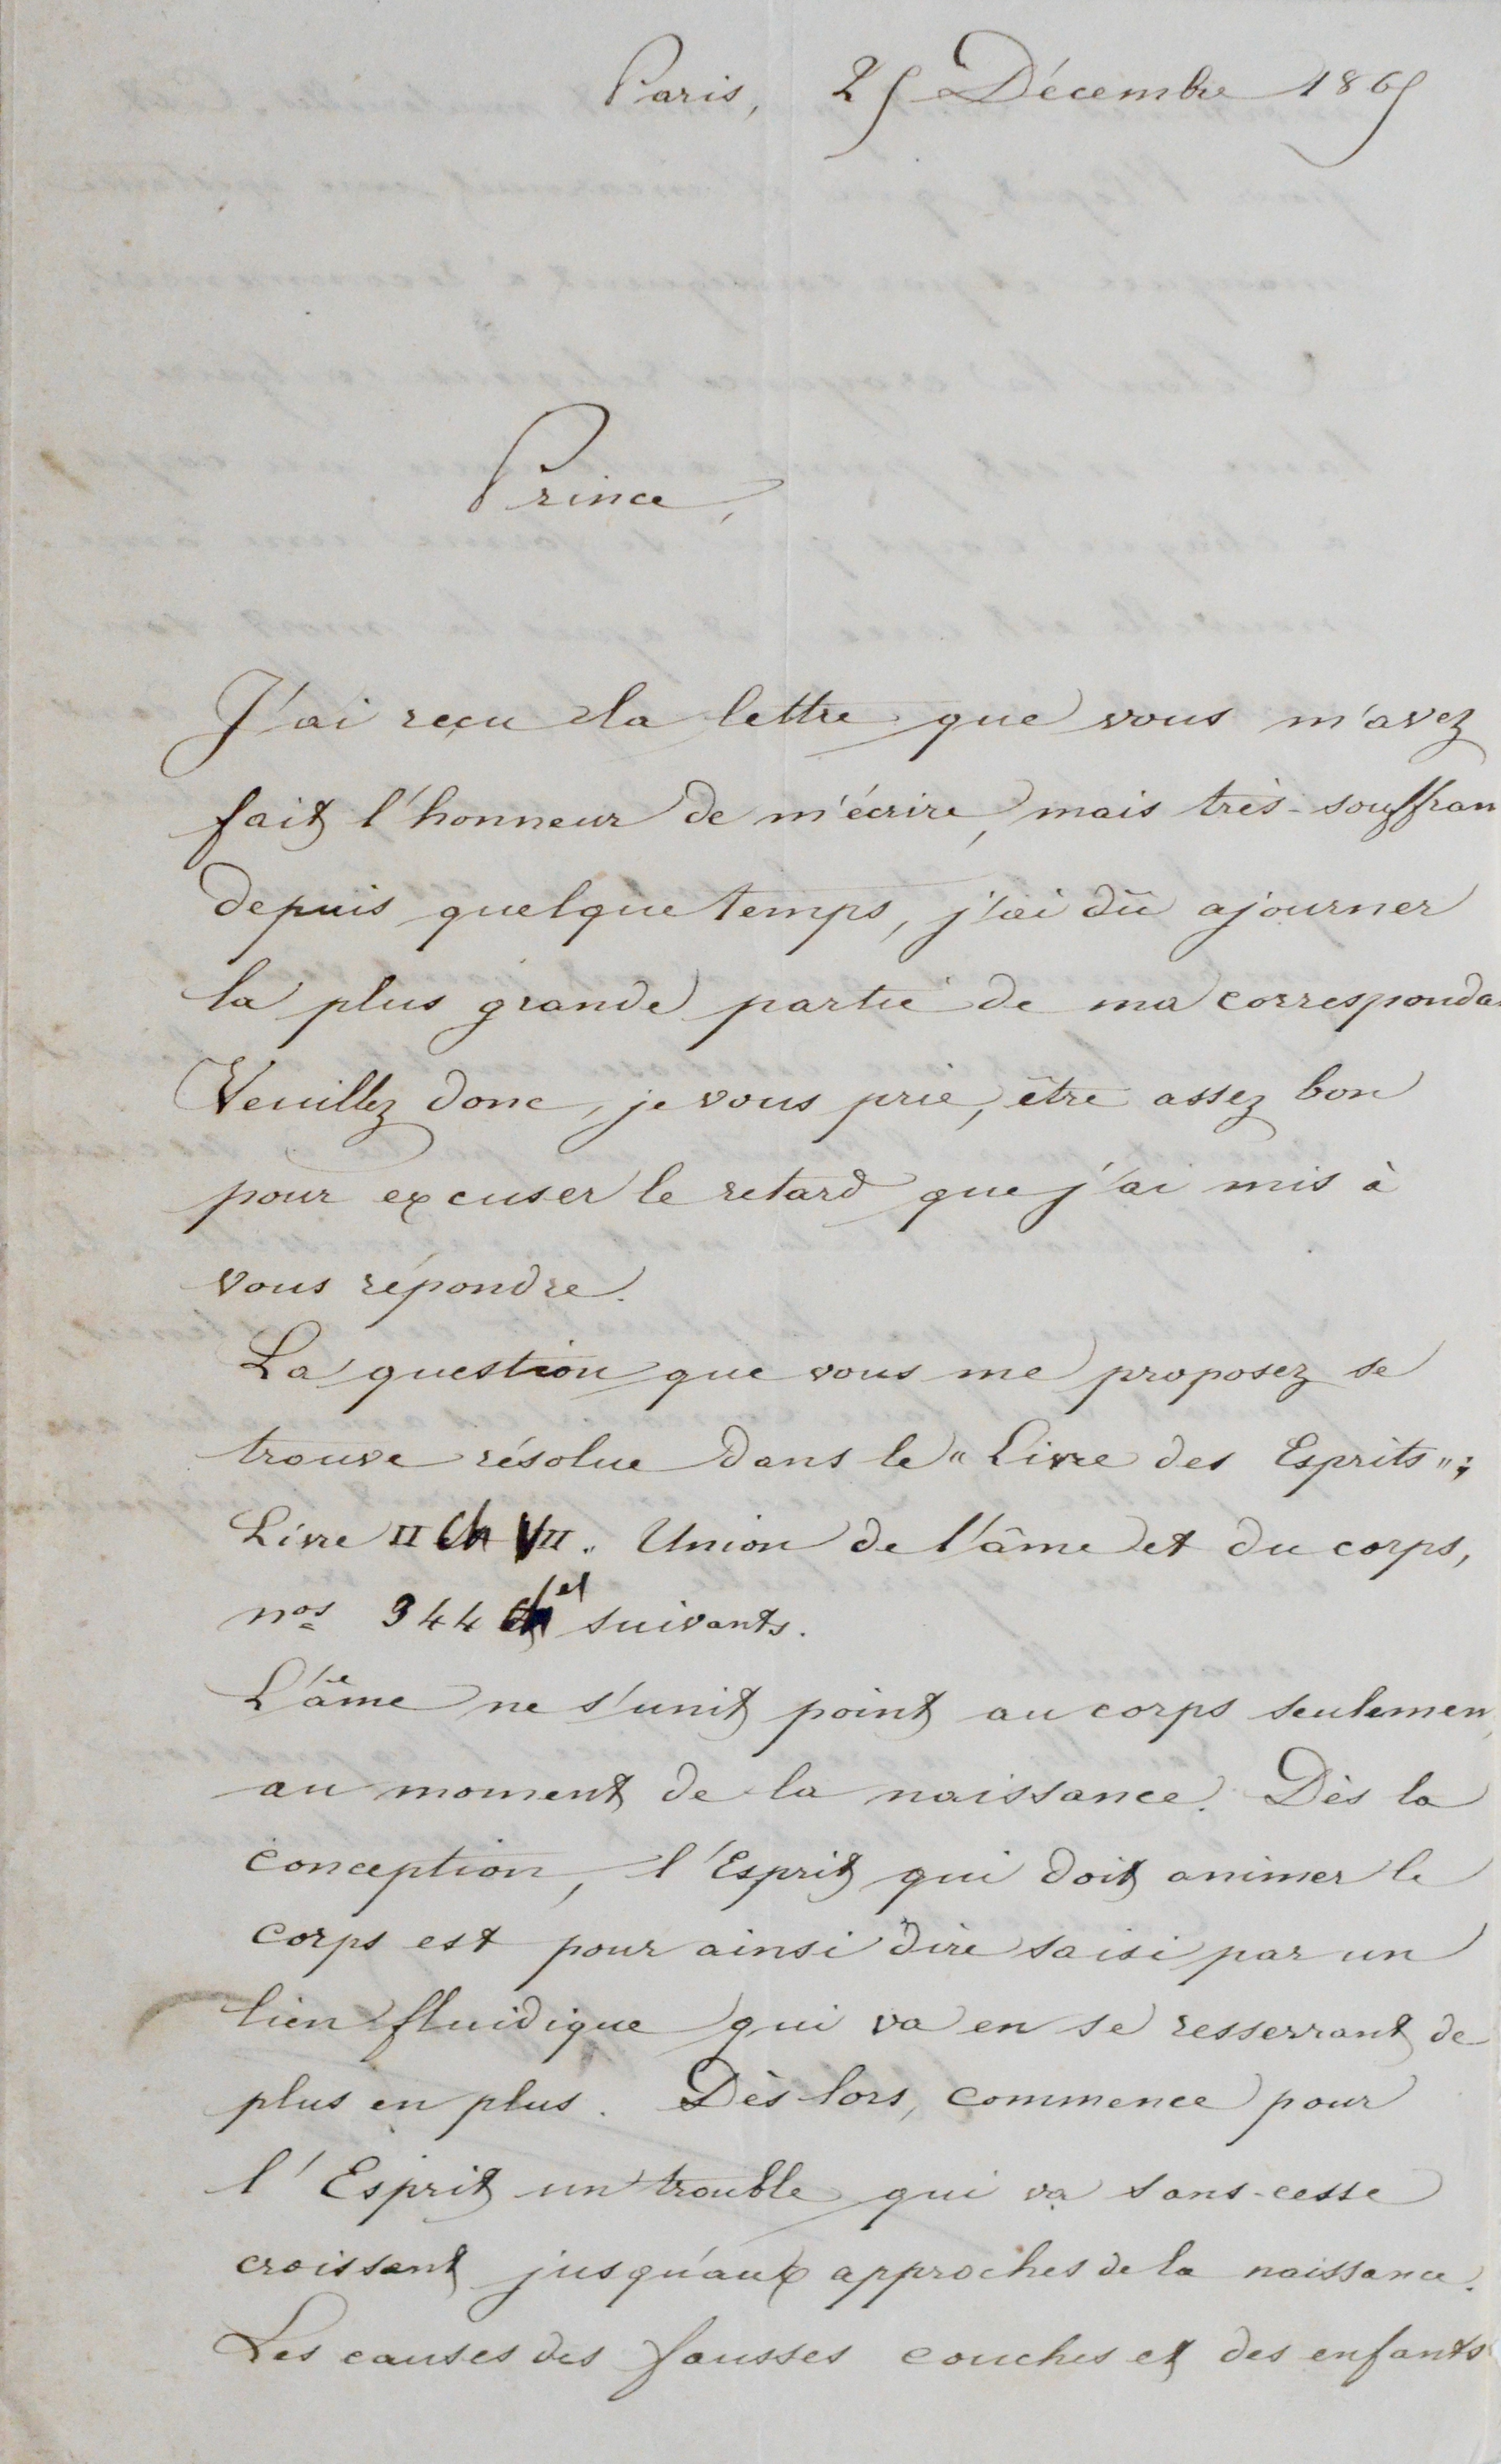 Paris, 25 Décembre 1865
Prince,
J'ai reçu la lettre que vous m'avez
fait l'honneur de m'écrire, mais très-souffran
depuis quelque temps, j'ai dû ajourner
la plus grande partie de ma corresponda
Veuillez donc, je vous prie, être assez bon
pour excuser le retard que j'ai mis à
vous répondre.
La question que vous me proposez se
trouve résolue dans le "Livre des Esprits";
Livre II Ch VII. Union de l'âme et du corps,
nos 344 et suivants.
L'âme ne s'unit point au corps seulemen
au moment de la naissance. Dès la
conception, l'Esprit qui doit animer le
corps est pour ainsi dire saisi par un
lien fluidique qui va en se resserrant de
plus en plus. Dès lors, commence pour
l'Esprit un trouble qui va sans-cesse
croissant jusqu'aux approches de la naissance.
Les causes des fausses couches et des enfants